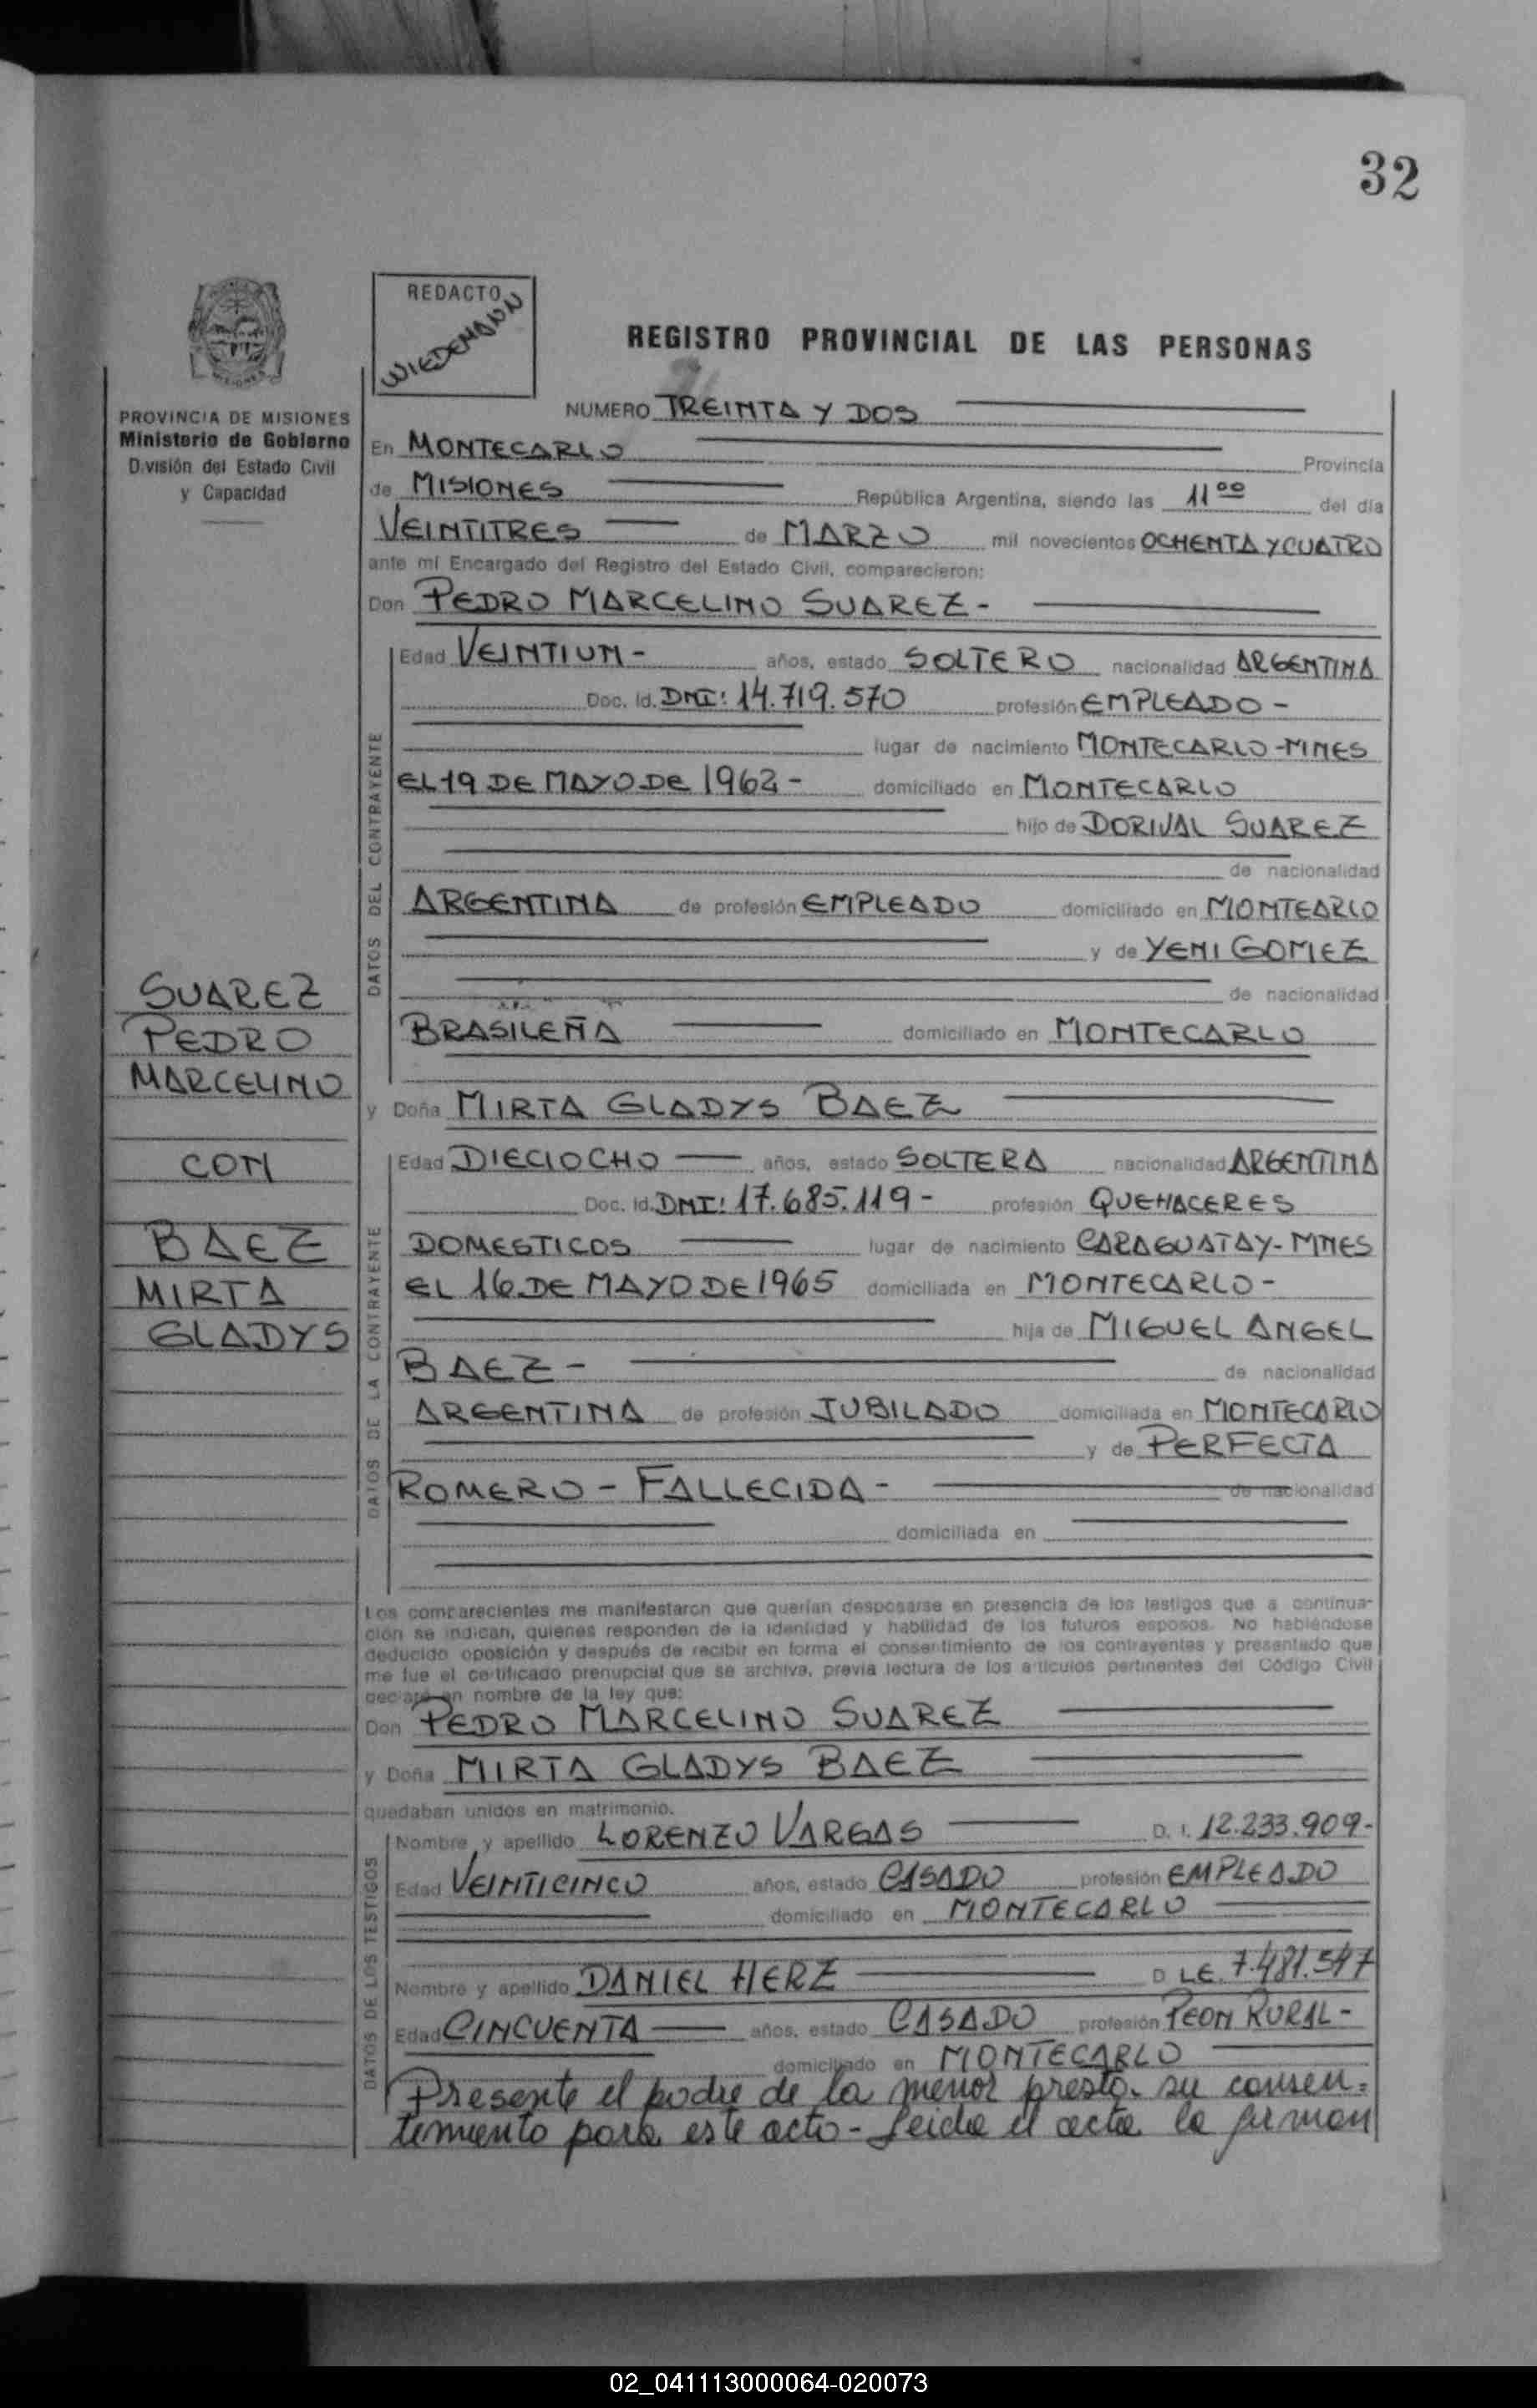 32
REDACTO
WIEDEMANN
REGISTRO PROVINCIAL DE LAS PERSONAS
PROVINCIA DE MISIONES
Ministerio de Gobierno
División del Estado Civil
y Capacidad
NUMERO TREINTA Y DOS
En MONTECARLO Provincia
de MISIONES República Argentina, siendo las 11 00 del día
VEINTITRES de MARZO mil novecientos OCHENTA Y CUATRO
ante mí Encargado del Registro del Estado Civil, comparecieron:
Don PEDRO MARCELINO SUAREZ-
DATOS DEL CONTRAYENTE
Edad VEINTIUN- años, estado SOLTERO nacionalidad ARGENTINA
Doc. Id. DNI: 14.719.570 profesión EMPLEADO-
lugar de nacimiento MONTECARLO-MNES
EL 19 DE MAYO DE 1962- domiciliado en MONTECARLO
hijo de DORIVAL SUAREZ
de nacionalidad
ARGENTINA de profesión EMPLEADO domiciliado en MONTEARLO
y de YENI GOMEZ
de nacionalidad
BRASILEÑA domiciliado en MONTECARLO
SUAREZ
PEDRO
MARCELINO
CON
BAEZ
MIRTA
GLADYS
y Doña MIRTA GLADYS BAEZ
DATOS DE LA CONTRAYENTE
Edad DIECIOCHO años, estado SOLTERA nacionalidad ARGENTINA
Doc. Id. DNI: 17.685.119- profesión QUEHACERES
DOMESTICOS lugar de nacimiento CARAGUATAY-MNES
EL 16 DE MAYO DE 1965 domiciliada en MONTECARLO-
hija de MIGUEL ANGEL
BAEZ- de nacionalidad
ARGENTINA de profesión JUBILADO domiciliada en MONTECARLO
y de PERFECTA
ROMERO-FALLECIDA- de nacionalidad
domiciliada en
Los comparecientes me manifestaron que querían desposarse en presencia de los testigos que a continua-
ción se indican, quienes responden de la identidad y habilidad de los futuros esposos. No habiéndose
deducido oposición y después de recibir en forma el consentimiento de los contrayentes y presentado que
me fue el certificado prenupcial que se archiva, previa lectura de los artículos pertinentes del Código Civil
declaré en nombre de la ley que:
Don PEDRO MARCELINO SUAREZ
y Doña MIRTA GLADYS BAEZ
quedaban unidos en matrimonio.
DATOS DE LOS TESTIGOS
Nombre y apellido LORENZO VARGAS D. I. 12.233.909-
Edad VEINTICINCO años, estado CASADO profesión EMPLEADO
domiciliado en MONTECARLO
Nombre y apellido DANIEL HERZ D LE. 7.481.547
Edad CINCUENTA años, estado CASADO profesión PEON RURAL-
domiciliado en MONTECARLO
Presente el padre de la menor presta su consen-
timiento para este acto- Leida el acta la firman
02_041113000064-020073